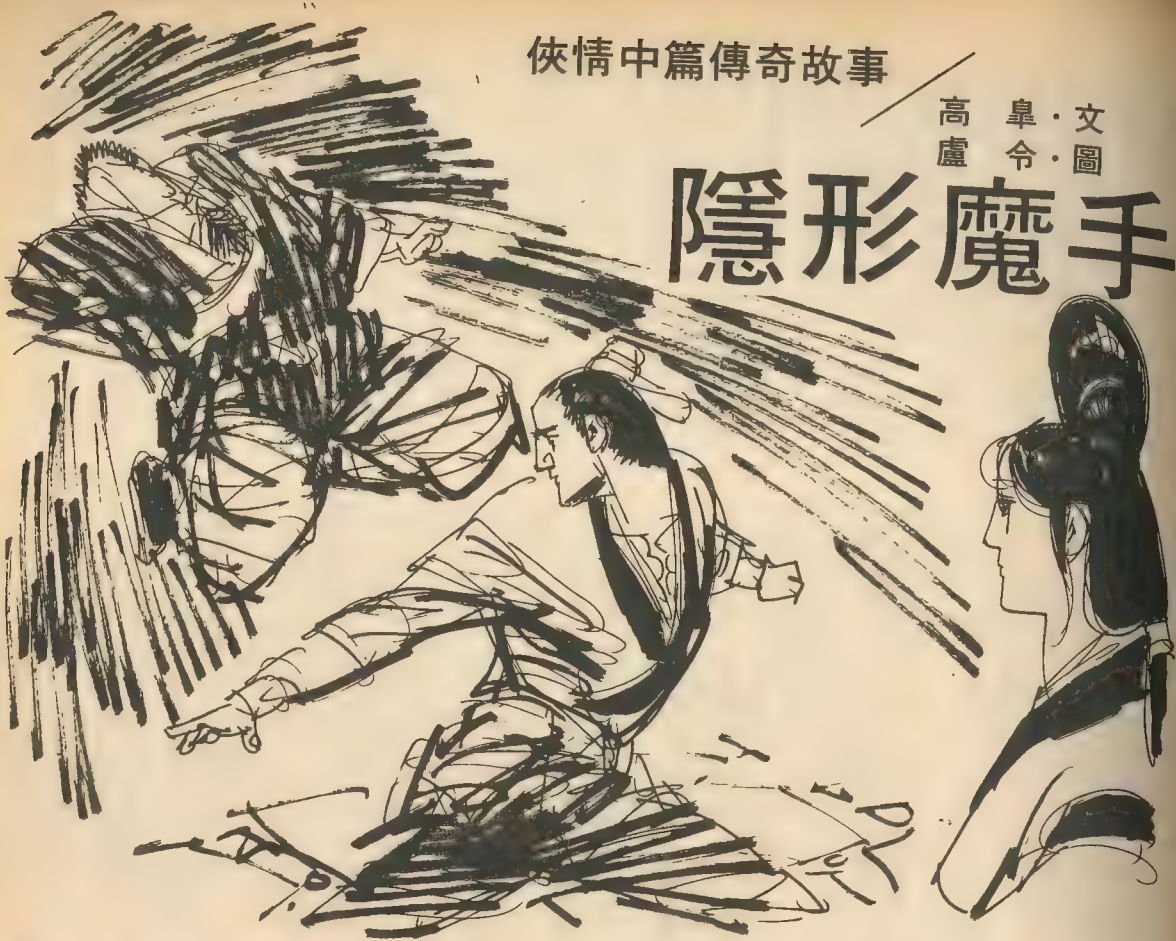 俠情中篇傳奇故事
高臯·文
盧令·圖
隱形魔手